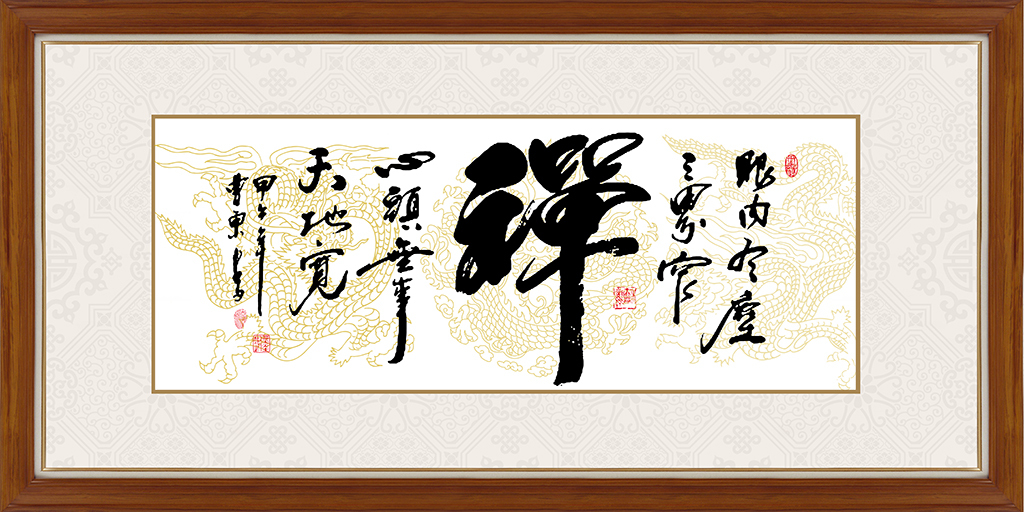 眼内有塵
三界窄
禪
心頭無事
天地寬
甲午年